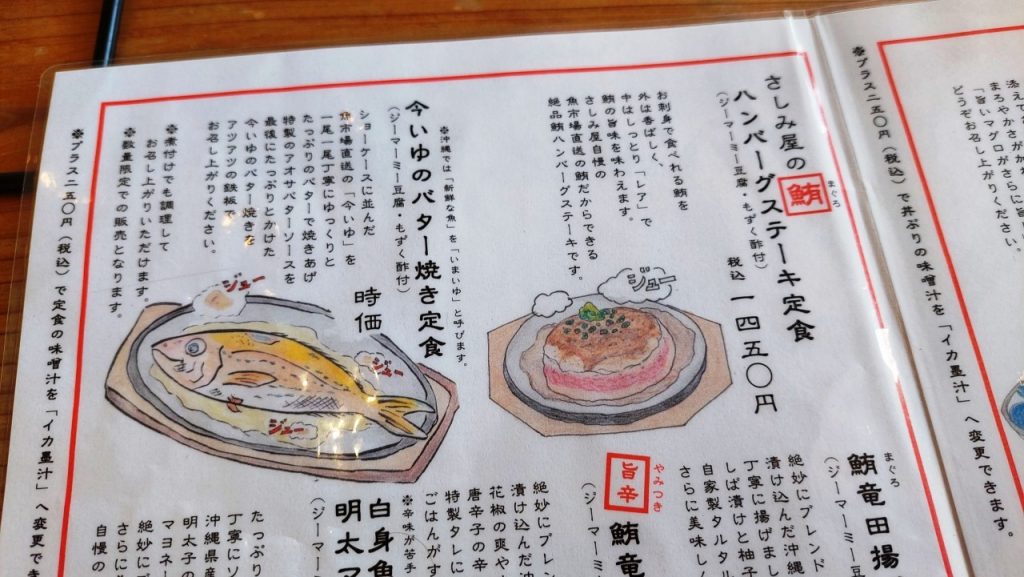 添え
まろやかさが
「旨いマグロがさらに旨
どうぞお召し上がりください。
※プラス二五〇円（税込）で丼ぶりの味噌汁を「イカ墨汁」へ変更できます。
さしみ屋の鮪ハンバーグステーキ定食
まぐろ
（ジーマーミー豆腐・もずく酢付）
税込 一四五〇円
お刺身で食べれる鮪を
外は香ばしく、
中はしっとり「レア」で
鮪の旨味を味わえます。
さしみ屋自慢の
魚市場直送の鮪だからできる
絶品鮪ハンバーグステーキです。
ジュー
※沖縄では「新鮮な魚」を「いまいゆ」と呼びます。
今いゆのバター焼き定食
（ジーマーミー豆腐・もずく酢付）
時価
ショーケースに並んだ
魚市場直送の「今いゆ」を
一尾一尾丁寧にゆっくりと
たっぷりのバターで焼きあげ
特製のアオサバターソースを
最後にたっぷりとかけた
今いゆのバター焼きを
アツアツの鉄板で
お召し上がりください。
※煮付けでも調理して
お召し上がりいただけます。
※数量限定での販売となります。
ジュー
ジュー
ジュー
※プラス二五〇円（税込）で定食の味噌汁を「イカ墨汁」へ変更でき
まぐろ
鮪竜田揚
（ジーマーミー豆
絶妙にブレンド
漬け込んだ沖縄
丁寧に揚げまし
しば漬けと柚子
自家製タルタル
さらに美味し
やみつき
旨辛
鮪竜
（ジーマーミ
絶妙にブレン
漬け込んだ沖
花椒の爽や
唐辛子の辛
特製タレに
ごはんがす
※辛味が苦手
白身魚
明太マ
（ジーマー
たっぷり
丁寧にソ
沖縄県産
明太子の
マヨネー
絶妙にブ
さらに
自慢の